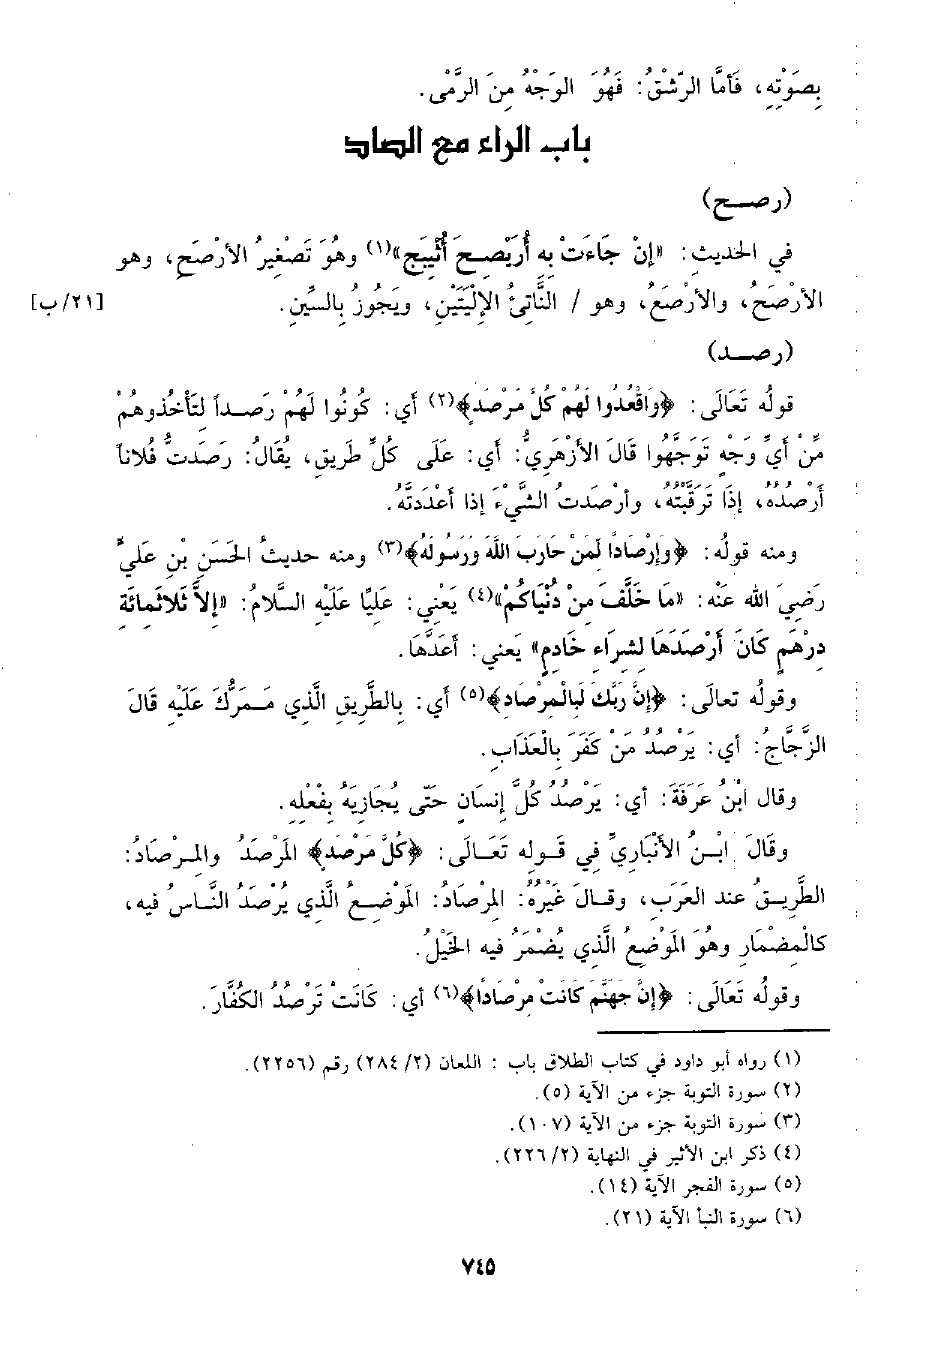 بِصَوْتِهِ، فَأمَّا الرِّشْقُ: فَهُوَ الوَجْهُ مِنَ الرَّمْى.
باب الراء مع الصاد
(رصح)
في الحديثِ: «إنْ جَاءَتْ بِهِ أُرَيْصِحَ أُثَيْبِجَ»(١) وهُوَ تَصْغِيرُ الأرْصَحِ، وهو
الأرْصَحُ، والأرْصَعُ، وهو / النَّاتِئُ الإلْيَتَيْنِ، ويَجُوزُ بِالسِّينِ. [٢١/ب]
(رصد)
قولُه تَعَالَى: ﴿وَاقْعُدُوا لَهُمْ كُلَّ مَرْصَدٍ﴾(٢) أي: كُونُوا لَهُمْ رَصَداً لتَأخُذُوهُمْ
مِّنْ أيِّ وَجْهٍ تَوَجَّهُوا قَالَ الأزْهَرِيُّ: أي: عَلَى كُلِّ طَرِيقٍ، يقُالُ: رَصَدتُّ فُلاناً
أَرْصُدُهُ، إذَا تَرَقَّبْتُهُ، وأرْصَدتُ الشَّيْءَ إذا أعْدَدتَّهُ.
ومنه قولُه: ﴿وَإِرْصَادًا لِمَنْ حَارَبَ اللَّهَ وَرَسُولَهُ﴾(٣) ومنه حديثُ الحَسَنِ بْنِ عَلِيٍّ
رَضِيَ الله عَنْه: «مَا خَلَّفَ مِنْ دُنْيَاكُمْ»(٤) يَعْنِي: عَلِيًا عَلَيْهِ السَّلامُ: «إلاَّ ثَلاثمِائَةِ
دِرْهَمٍ كَانَ أَرْصَدَهَا لشِرَاءِ خَادِمٍ» يَعني: أعَدَّهَا.
وقولُه تعالَى: ﴿إِنَّ رَبَّكَ لَبِالْمِرْصَادِ﴾(٥) أي: بِالطَّرِيقِ الَّذِي مَمَرُّكَ عَلَيْهِ قَالَ
الزَّجَّاجُ: أي: يَرْصُدُ مَنْ كَفَرَ بِالْعَذَابِ.
وقال ابنُ عَرَفَةَ: أي: يَرْصُدُ كُلَّ إنسَانٍ حَتّى يُجَازِيَهُ بِفْعلِهِ.
وقَالَ ابْنُ الأنْبَارِيِّ فِي قَولِه تَعَالَى: ﴿كُلَّ مَرْصَدٍ﴾ المَرْصَدُ والمِرصَادُ:
الطَّرِيقُ عند العَرَبِ، وقالَ غَيْرُهُ: المِرْصَادُ: المَوْضِعُ الَّذِي يُرْصَدُ النَّاسُ فيهِ،
كالْمِضْمَارِ وهُوَ المَوْضِعُ الَّذِي يُضْمَرُ فيهِ الخَيْلُ.
وقولُه تَعَالَى: ﴿إِنَّ جَهَنَّمَ كَانَتْ مِرْصَادًا﴾(٦) أي: كَانَتْ تَرْصُدُ الكُفَّارَ.
(١) رواه أبو داود في كتاب الطلاق باب : اللعان (٢/ ٢٨٤) رقم (٢٢٥٦).
(٢) سورة التوبة جزء من الآية (٥).
(٣) سورة التوبة جزء من الآية (١٠٧).
(٤) ذكر ابن الأثير في النهاية (٢٢٦/٢).
(٥) سورة الفجر الآية (١٤).
(٦) سورة النبأ الآية (٢١).
٧٤٥